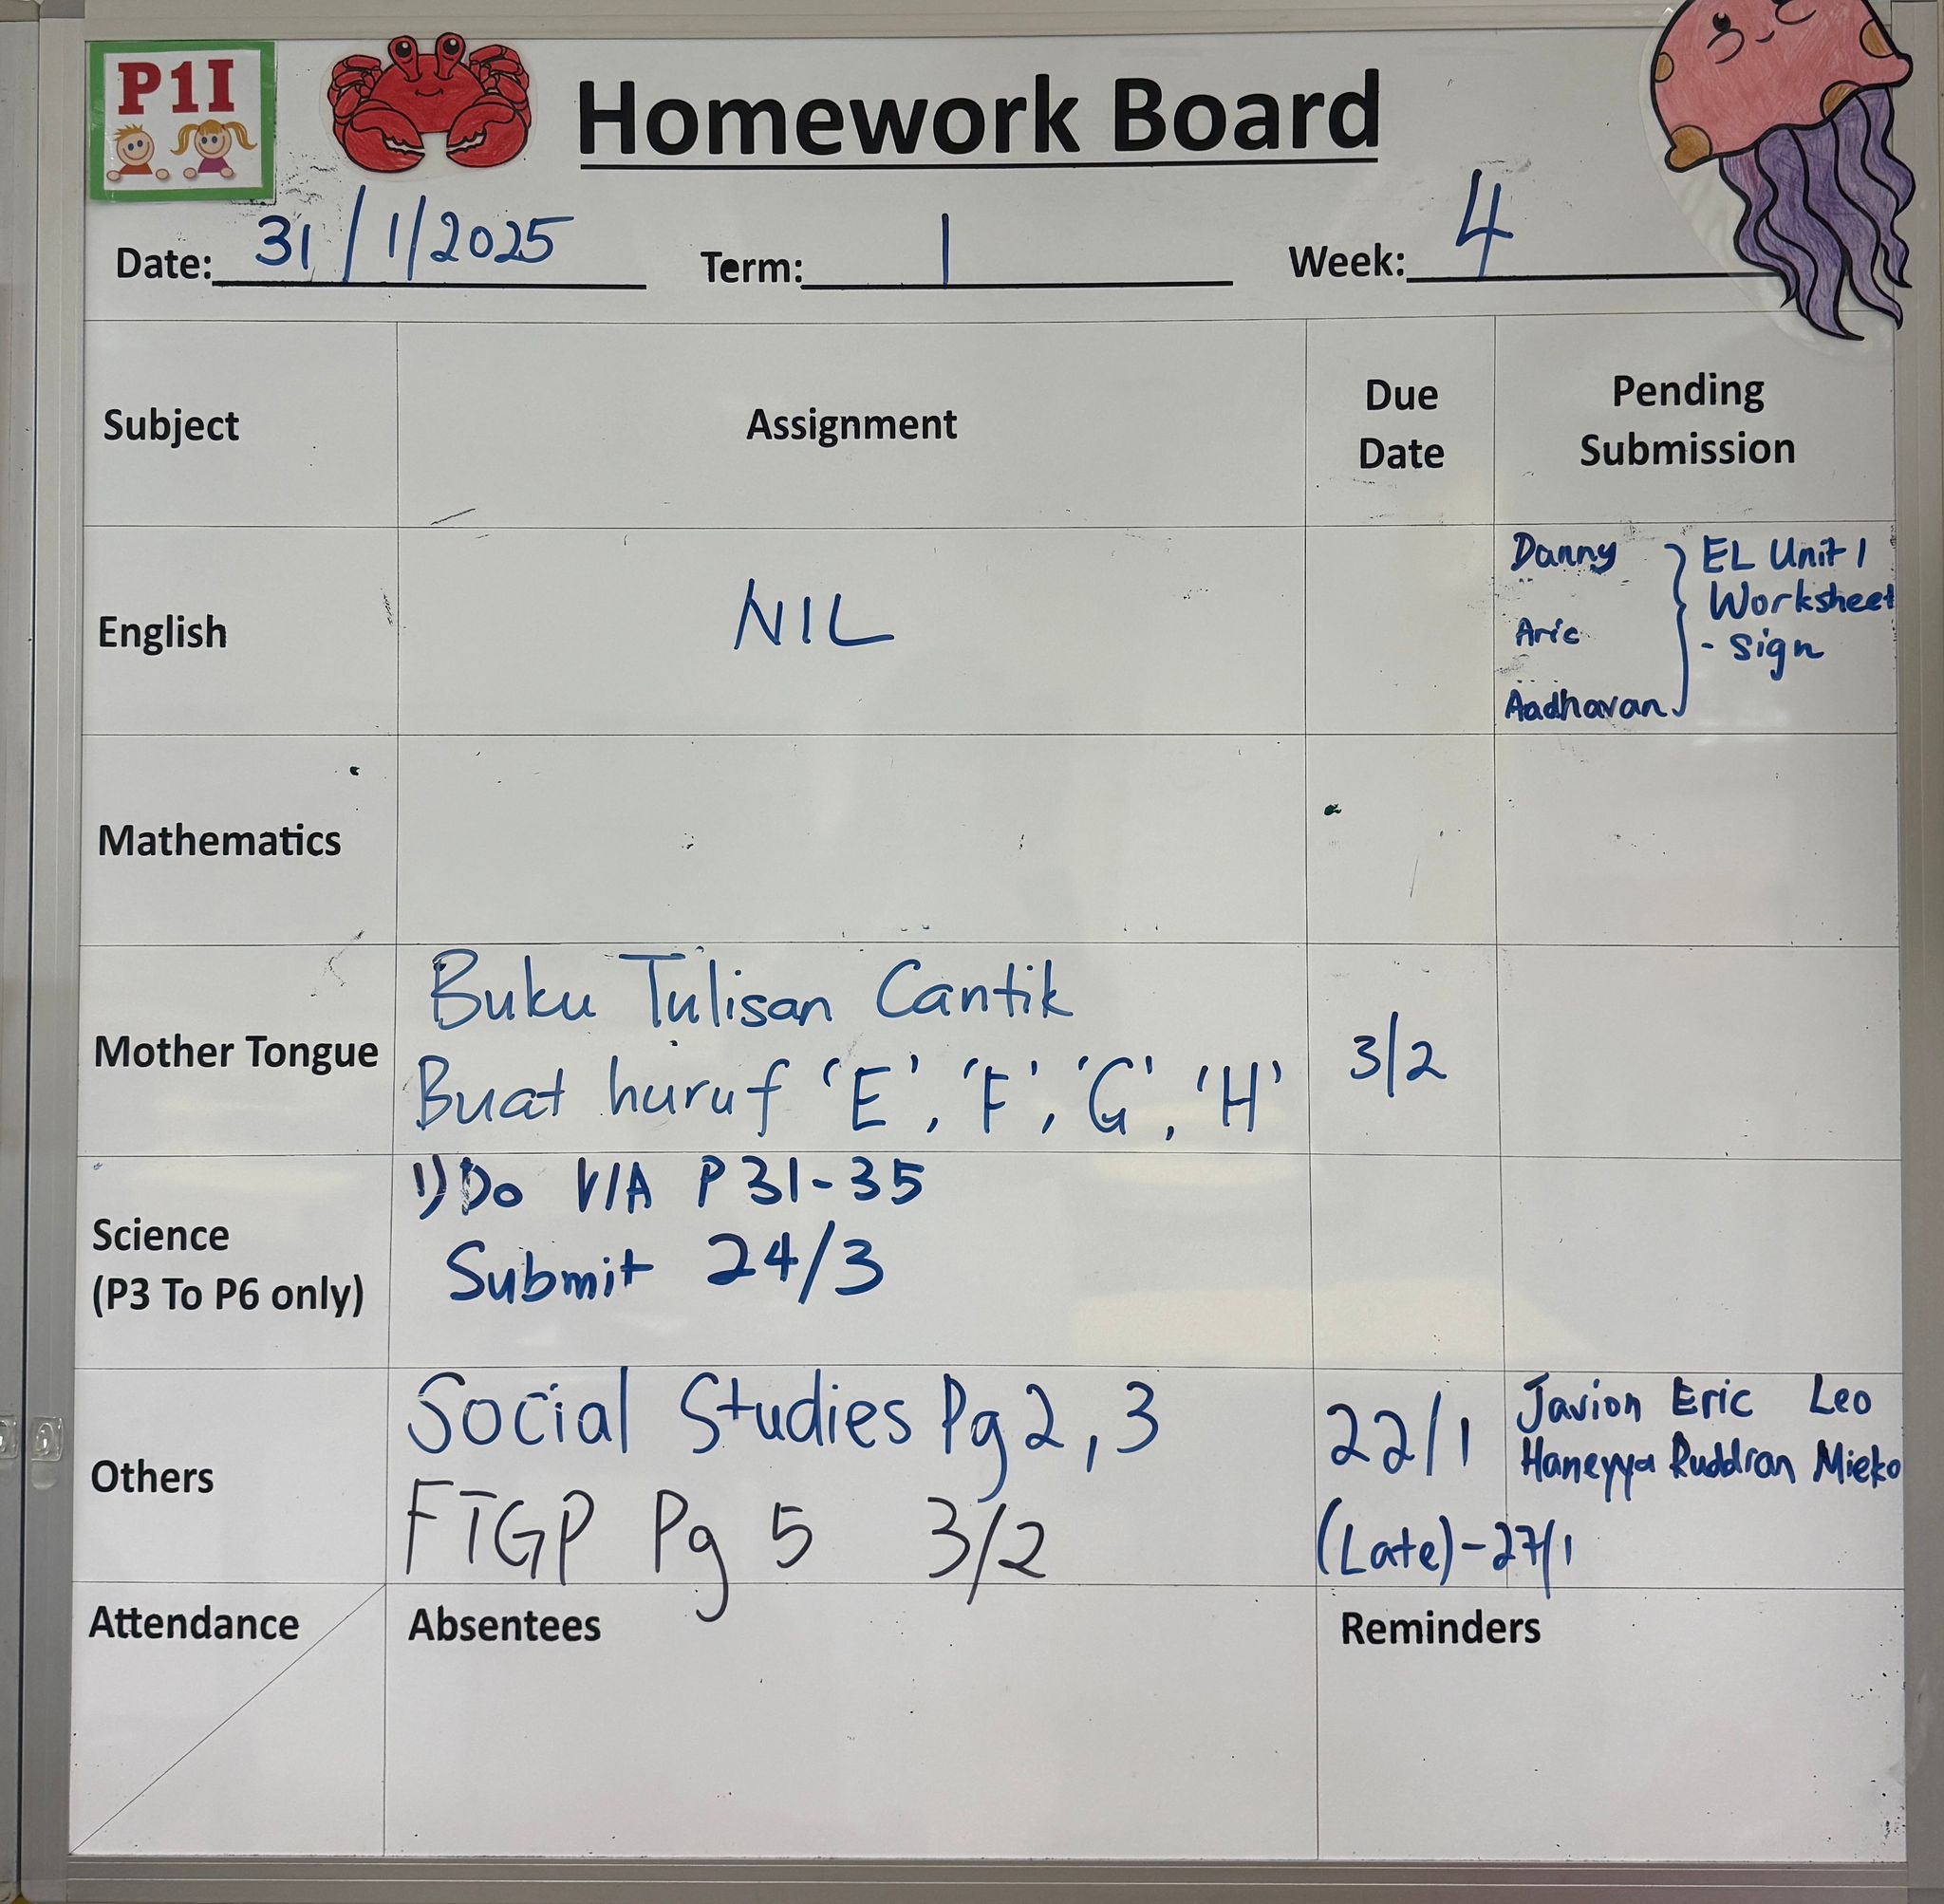 P1I
Homework Board
Date: 31/1/2025 Term: 1 Week: 4
Subject Assignment Due Date Pending Submission
English NIL
Danny
Aric
Aadhavan
EL Unit 1
Worksheet
- Sign
Mathematics
Mother Tongue
Buku Tulisan Cantik
Buat huruf 'E', 'F', 'G', 'H'
3/2
Science
(P3 To P6 only)
1) Do V/A P 31-35
Submit 24/3
Others
Social Studies Pg 2, 3
FTGP Pg 5 3/2
22/1
(Late) - 27/1
Javion Eric Leo
Haneyya Ruddran Mieko
Attendance Absentees Reminders